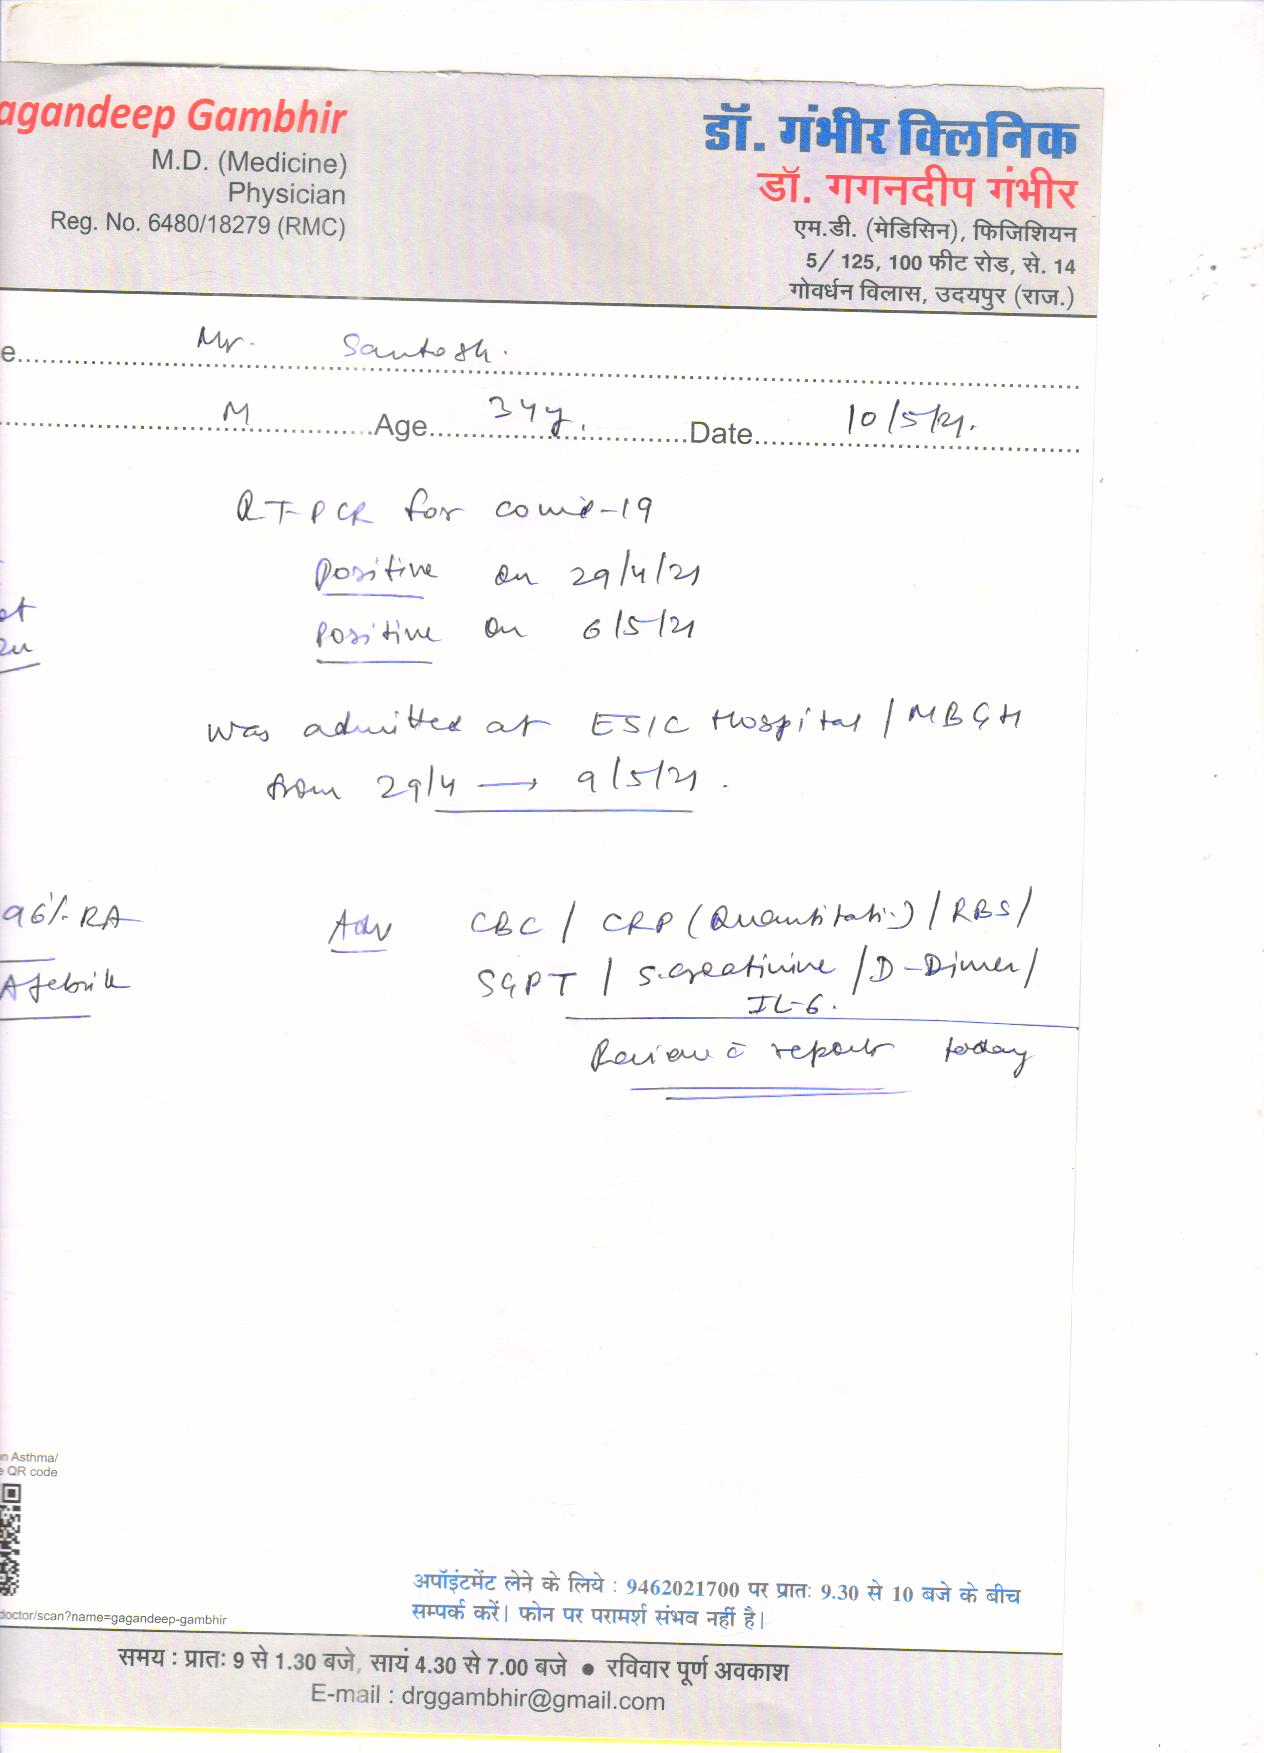 agandeep Gambhir
M.D. (Medicine)
Physician
Reg. No. 6480/18279 (RMC)
डॉ. गंभीर क्लिनिक
डॉ. गगनदीप गंभीर
एम.डी. (मेडिसिन), फिजिशियन
5/ 125, 100 फीट रोड, से. 14
गोवर्धन विलास, उदयपुर (राज.)
e Mr. Santosh.
M Age 34y. Date 10/5/21.
RT-PCR for covid-19
Positive on 29/4/21
Positive on 6/5/21
was admitted at ESIC Hospital / MBGH
from 29/4 → 9/5/21.
96% RA
Afebrile
Adv CBC / CRP (Quantitati.) / RBS /
SGPT / S.creatinine / D-Dimer /
IL-6.
Review c̄ reports today
n Asthma/
e QR code
doctor/scan?name=gagandeep-gambhir
अपॉइंटमेंट लेने के लिये : 9462021700 पर प्रातः 9.30 से 10 बजे के बीच
सम्पर्क करें। फोन पर परामर्श संभव नहीं है।
समय : प्रातः 9 से 1.30 बजे, सायं 4.30 से 7.00 बजे ● रविवार पूर्ण अवकाश
E-mail : drggambhir@gmail.com